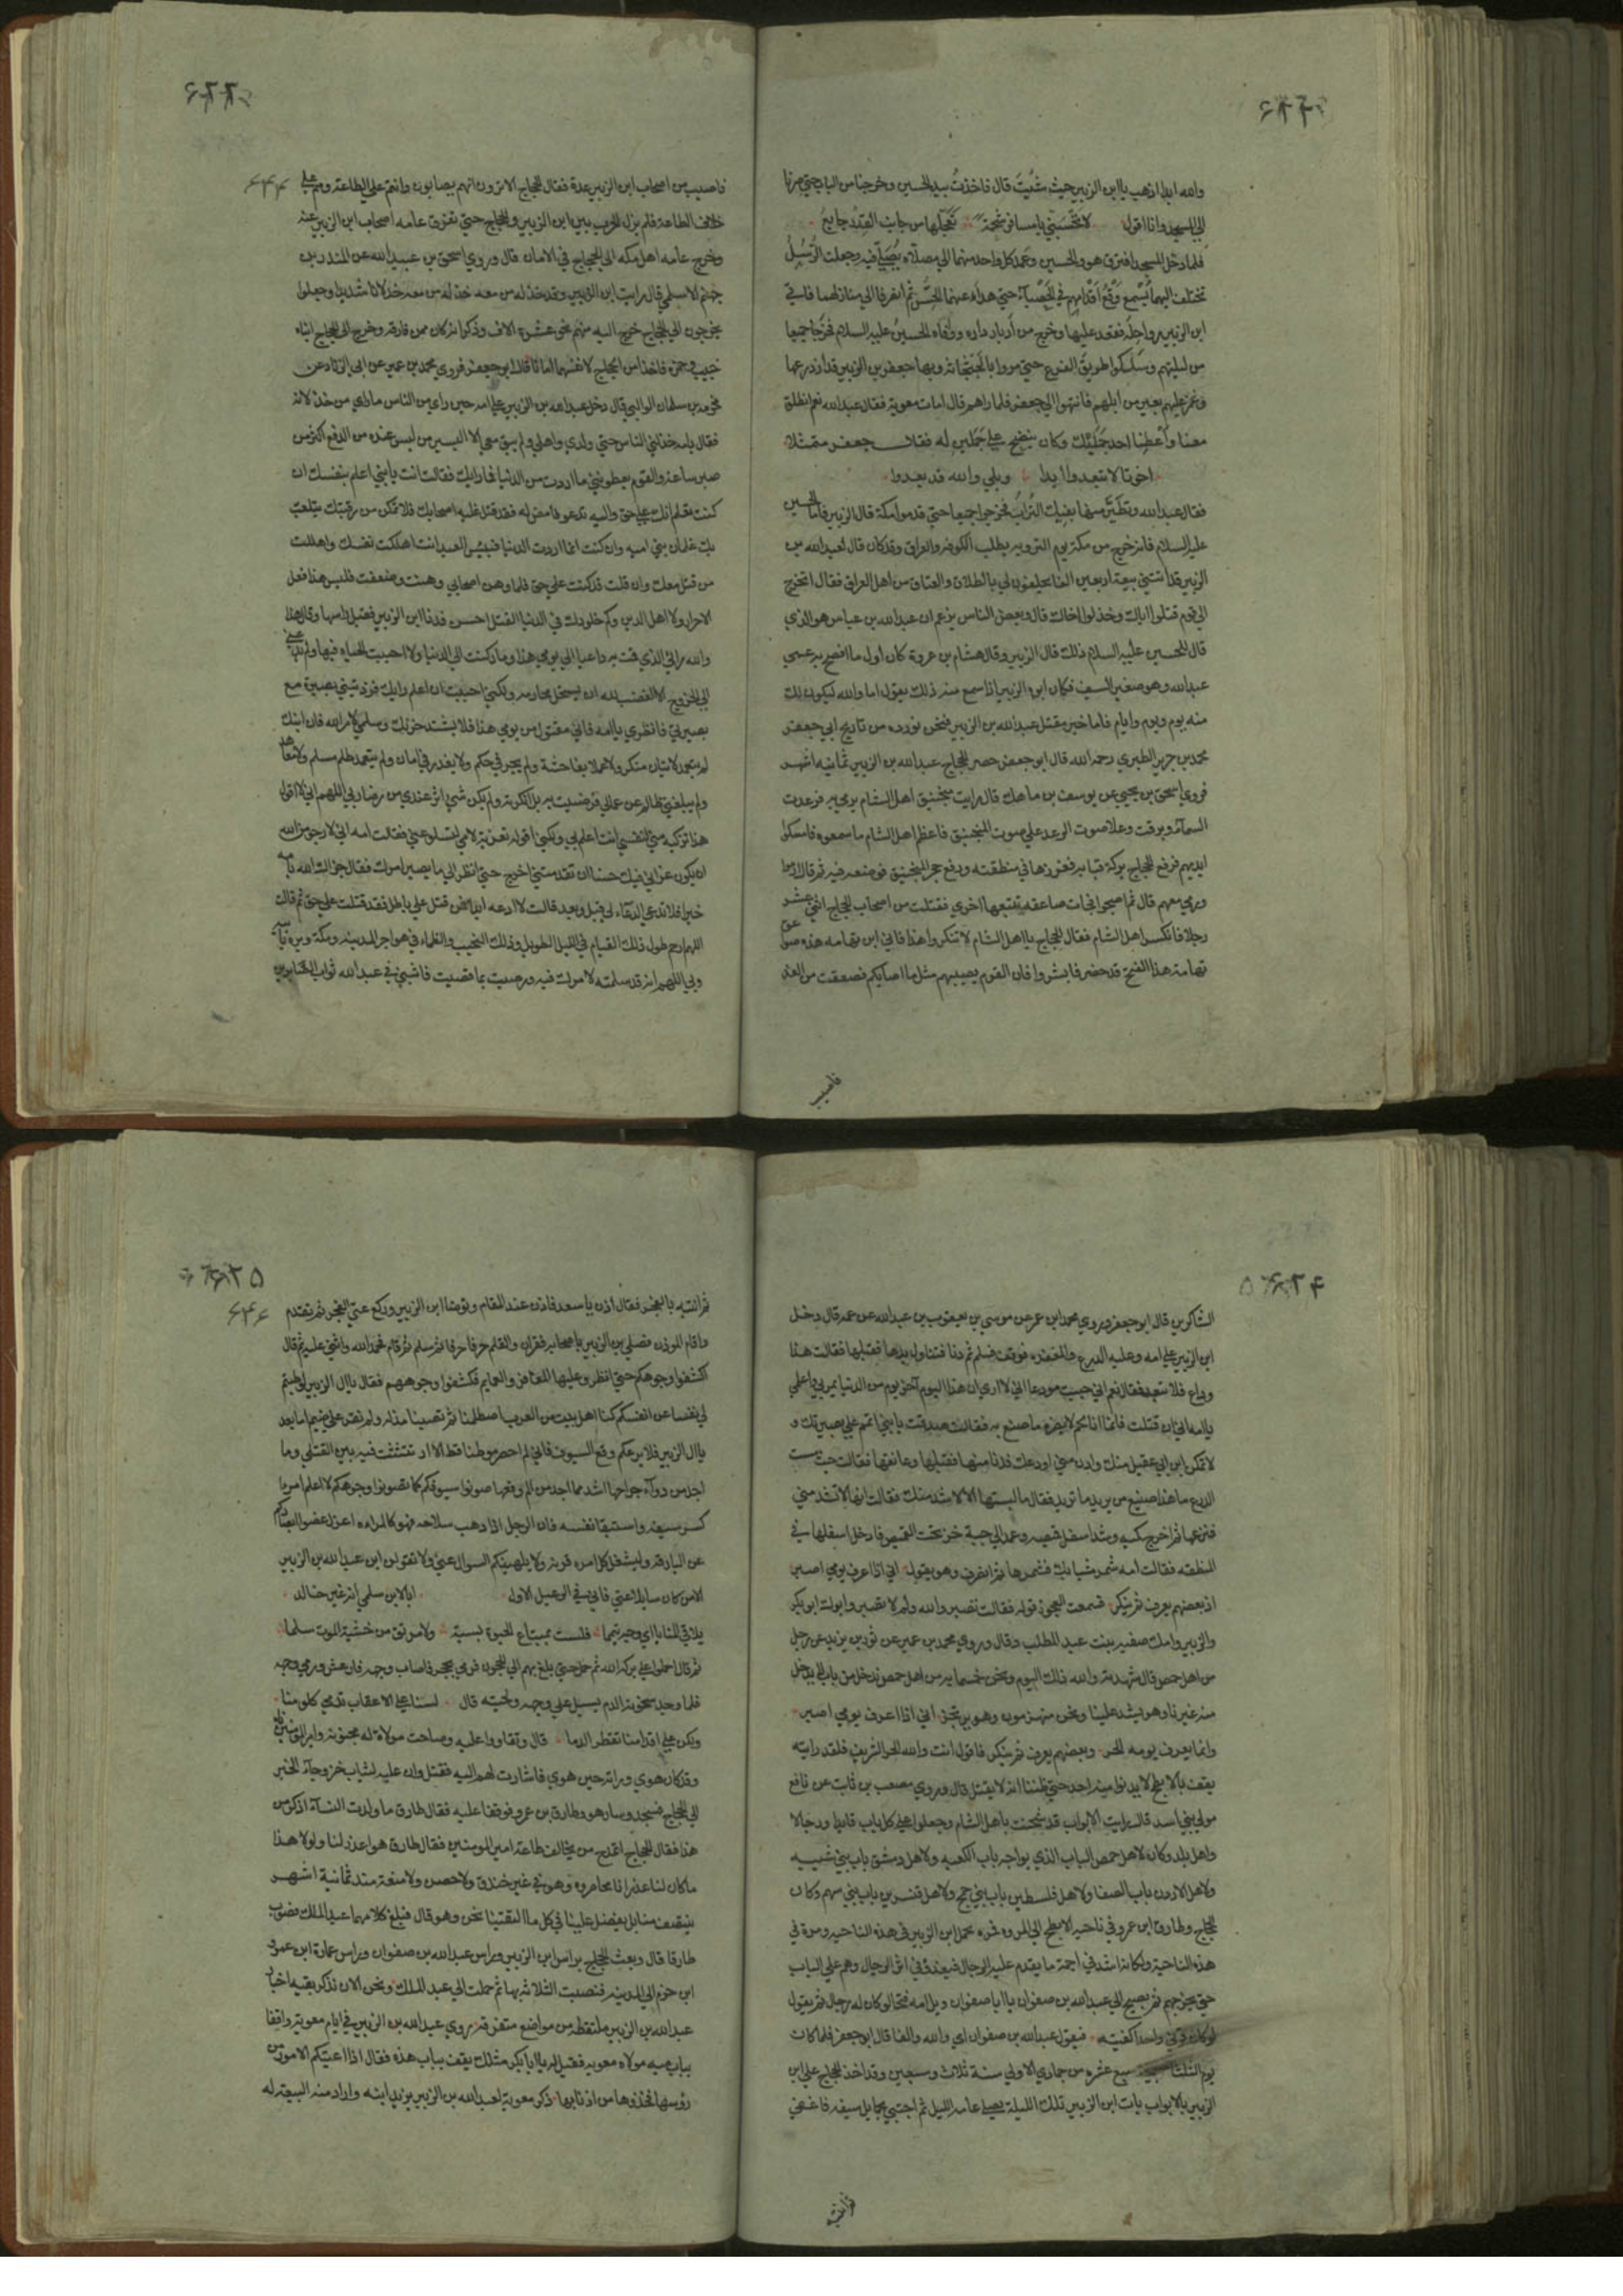 والله ابدا اذهب يا ابن الزبير حيث شئت قال فاخذت بيد الحسين وخرجنا من الباب حتى صرنا
الى المسجد وانا اقول لا تحسبني يا مسافر شحمة تعجلها من جانب القدر جايع
فلما دخل المسجد افترق هو والحسين وعمد كل واحد منهما الى مصلاه يصلي فيه وجعلت الرسل
تختلف اليهما يسمع وقع اقدامهم في الحصباء حتى هدأ عنهما الحس ثم انصرفا الى منازلهما فاتى
ابن الزبير رواحله فقعد عليها وخرج من ادبار داره ووافاه الحسين عليه السلام فخرجا جميعا
من ليلتهم وسلكوا طريق الفرع حتى مروا بالجثجاثة وبها جعفر بن الزبير قد ازدرعها
وغمز عليهم بعير من ابلهم فانتهوا الى جعفر فلما راهم قال امات معوية فقال عبدالله نعم انطلق
معنا واعطنا احد جمليك وكان ينضح على جملين له فقال جعفر متمثلا
اخوتا لا تبعدوا ابدا وبلى والله قد بعدوا
فقال عبدالله وتطير منها بفيك التراب فخرجوا جميعا حتى قدموا مكة قال الزبير فاما الحسين
عليه السلام فانه خرج من مكة يوم التروية يطلب الكوفة والعراق وقد كان قال لعبدالله بن
الزبير قد اتتني بيعة اربعين الفا يحلفون لي بالطلاق والعتاق من اهل العراق فقال اتخرج
الى قوم قتلوا اباك وخذلوا اخاك قال وبعض الناس يزعم ان عبدالله بن عباس هو الذي
قال للحسين عليه السلام ذلك قال الزبير وقال هشام بن عروة كان اول ما افصح به عمى
عبدالله وهو صغير السيف فكان ابوه الزبير اذا سمع منه ذلك يقول اما والله ليكونن لك
منه يوم ويوم وايام فاما خبر مقتل عبدالله بن الزبير فنحن نورده من تاريخ ابي جعفر
محمد بن جرير الطبري رحمه الله قال ابو جعفر حصر الحجاج عبدالله بن الزبير ثمانية اشهر
فروى اسحق بن يحيى عن يوسف بن ماهك قال رايت منجنيق اهل الشام يرمى به فرعدت
السماء وبرقت وعلا صوت الرعد على صوت المنجنيق فاعظم اهل الشام ما سمعوه فامسكوا
ايديهم فرفع الحجاج بركة قبايه فغرزها في منطقته ورفع حجر المنجنيق فوضعه فيه ثم قال ارموا
ورمى معهم قال ثم اصبحوا فجات صاعقة تتبعها اخرى فقتلت من اصحاب الحجاج اثنى عشر
رجلا فانكسر اهل الشام فقال الحجاج يا اهل الشام لا تنكروا هذا فاني ابن تهامه هذه صواعق
تهامة هذا الفتح قد حضر فابشروا فان القوم يصيبهم مثل ما اصابكم فصعقت من الغد
فاصيب
فاصيب من اصحاب ابن الزبير عدة فقال الحجاج الا ترون انهم يصابون وانتم على الطاعة وهم على
خلاف الطاعة فلم تزل الحرب بين ابن الزبير والحجاج حتى تفرق عامه اصحاب ابن الزبير عنه
وخرج عامه اهل مكه الى الحجاج في الامان قال وروى اسحق بن عبيدالله عن المنذر بن
جهم الاسلمي قال رايت ابن الزبير وقد خذله من معه خذلانا شديدا وجعلوا
يخرجون الى الحجاج خرج اليه منهم نحو عشرة الاف وذكر انه كان ممن فارقه وخرج الى الحجاج ابناه
خبيب وحمزه فاخذا من الحجاج لانفسهما امانا قال ابو جعفر فروى محمد بن عمر عن ابي الزناد عن
مخرمه بن سلمان الوالبي قال دخل عبدالله بن الزبير على امه حين راى من الناس ما راى من خذلانه
فقال يا امه خذلني الناس حتى ولدي واهلي ولم يبق معي الا اليسير من ليس عنده من الدفع اكثر من
صبر ساعة والقوم يعطونني ما اردت من الدنيا فما رايك فقالت انت يا بني اعلم بنفسك ان
كنت تعلم انك على حق واليه تدعو فامض له فقد قتل عليه اصحابك فلا تمكن من رقبتك يتلعب
بك غلمان بني اميه وان كنت انما اردت الدنيا فبئس العبد انت اهلكت نفسك واهلكت
من قتل معك وان قلت قد كنت على حق فلما وهن اصحابي وهنت وضعفت فليس هذا فعل
الاحرار ولا اهل الدين وكم خلودك في الدنيا القتل احسن فدنا ابن الزبير فقبل راسها وقال هذا
والله رائي الذي قمت به داعيا الى يومي هذا وما ركنت الى الدنيا ولا احببت الحياه فيها
الى الخروج الا الغضب لله ان يستحل محارمه ولكني احببت ان اعلم رايك فزدتيني بصيرة مع
بصيرتي فانظري يا امه فاني مقتول من يومي هذا فلا يشتد حزنك وسلمي لامر الله فان ابنك
لم يتعمد لاتيان منكر ولا عملا بفاحشة ولم يجر في حكم ولا يغدر في امان ولم يتعمد ظلم مسلم ولا معاهد
ولم يبلغني ظلم عن عمالي فرضيت به بل انكرته ولم يكن شي اثر عندي من رضا ربي اللهم اني لا اقول
هذا تزكيه مني لنفسي انت اعلم بي ولكني اقوله تعزية لامي لتسلو عني فقالت امه اني لارجو من الله
ان يكون عزاي فيك حسنا ان تقدمتني اخرج حتى انظر الى ما يصير امرك فقال جزاك الله يا امه
خيرا فلا تدعي الدعاء لي قبل وبعد قالت لا ادعه ابدا فمن قتل على باطل فقد قتلت على حق ثم قالت
اللهم ارحم طول ذلك القيام في الليل الطويل وذلك النحيب والظماء في هواجر المدينه ومكة وبره بابيه
وبي اللهم انه قد سلمته لامرك فيه ورضيت بما قضيت فاثبني في عبدالله ثواب الصابرين
الشاكرين قال ابو جعفر وروى محمد ابن عمر عن موسى بن يعقوب بن عبدالله عن عمه قال دخل
ابن الزبير على امه وعليه الدرع والمغفر فوقف فسلم ثم دنا فتناول يدها فقبلها فقالت هذا
وداع فلا تبعد فقال نعم اني جيت مودعا اني لا ارى ان هذا اليوم اخر يوم من الدنيا يمر بي واعلمي
يا امه اني ان قتلت فانما انا لحم لا يضره ما صنع به فقالت صدقت يا بني اتمم على بصيرتك و
لا تمكن ابن ابي عقيل منك وادن مني اودعك فدنا منها فقبلها وعانقها فقالت حيث مست
الدرع ما هذا صنيع من يريد ما تريد فقال ما لبستها الا لاشد منك فقالت انها لا تشد مني
فنزعها ثم اخرج كميه وشد اسفل قميصه وعمد الى جبة خز تحت القميص فادخل اسفلها في
المنطقه فقالت امه شمر ثيابك فشمرها ثم انصرف وهو يقول اني اذا اعرف يومي اصبر
اذ بعضهم يعرف ثم ينكر فسمعت العجوز قوله فقالت تصبر والله ولم لا تصبر وابوك ابو بكر
والزبير وامك صفيه بنت عبد المطلب وقال وروى محمد بن عمر عن ثور بن يزيد عن رجل
من اهل حمص قال شهدته والله ذلك اليوم ونحن خمسمايه من اهل حمص ندخل من باب لا يدخل
منه غيرنا وهو يشد علينا ونحن منهزمون وهو يرتجز اني اذا اعرف يومي اصبر
وانما يعرف يومه الحر وبعضهم يعرف ثم ينكر فاقول انت والله الحر الشريف فلقد رايته
يقف بالابطح لا يدنوا منه احد حتى ظننا انه لا يقتل قال وروى مصعب بن ثابت عن نافع
مولى بني اسد قال رايت الابواب قد شحنت باهل الشام وجعلوا على كل باب قايدا ورجالا
واهل بلد وكان لاهل حمص الباب الذي يواجه باب الكعبه ولاهل دمشق باب بني شيبه
ولاهل الاردن باب الصفا ولاهل فلسطين باب بني جمح ولاهل قنسرين باب بني سهم وكان
الحجاج وطارق ابن عمرو في ناحيه الابطح الى المروه فمره يحمل ابن الزبير في هذه الناحيه ومرة في
هذه الناحية ولكانه اسد في اجمة ما يقدم عليه الرجال فيعدو في اثر الرجال وهم على الباب
حتى يخرجهم ثم يصيح الى عبدالله بن صفوان يا ابا صفوان ويل امه فتحا لو كان له رجال ثم يقول
لو كان قرني واحدا كفيته فيقول عبدالله بن صفوان اي والله والفا قال ابو جعفر فلما كان
يوم الثلثا صبيحة سبع عشره من جمادى الاولى سنة ثلاث وسبعين وقد اخذ الحجاج على ابن
الزبير بالابواب بات ابن الزبير تلك الليلة يصلي عامه الليل ثم احتبى بحمايل سيفه فاغفى
ثم انتبه
ثم انتبه بالفجر فقال اذن يا سعد فاذن عند المقام وتوضا ابن الزبير وركع ركعتي الفجر ثم تقدم
واقام الموذن فصلى ابن الزبير باصحابه فقرا ن والقلم حرفا حرفا ثم سلم ثم قام فحمد الله واثنى عليه ثم قال
اكشفوا وجوهكم حتى انظر وعليها المغافر والعمايم فكشفوا وجوههم فقال يا ال الزبير لو طبتم
لي نفسا عن انفسكم كنا اهل بيت من العرب اصطلمنا لم تصبنا مذلة ولم نقر على ضيم اما بعد
يا ال الزبير فلا يرعكم وقع السيوف فاني لم احضر موطنا قط الا ارتثثت فيه بين القتلى وما
اجد من دواء جراحها اشد مما اجد من الم وقعها صونوا سيوفكم كما تصونوا وجوهكم لا اعلم امرءا
كسر سيفه واستبقا نفسه فان الرجل اذا ذهب سلاحه فهو كالمراه اعزل غضوا ابصاركم
عن البارقة وليشغل كل امرء قرنه ولا يلهينكم السوال عني ولا تقولن اين عبدالله بن الزبير
الا من كان سايلا عني فاني في الرعيل الاول ابى لابن سلمى انه غير خالد
يلاقي المنايا اي وجه تيمما فلست بمبتاع الحيوة بسبة ولا مرتق من خشية الموت سلما
ثم قال احملوا على بركة الله ثم حمل حتى بلغ بهم الى الحجون فرمي بحجر فاصاب وجهه فارعش ودمي وجهه
فلما وجد سخونة الدم يسيل على وجهه ولحيته قال لسنا على الاعقاب تدمى كلومنا
ولكن على اقدامنا تقطر الدما قال وتقاووا عليه وصاحت مولاة له مجنونه وا امير المومنيناه
وقد كان هوى وراته حين هوى فاشارت لهم اليه فقتل وان عليه لثياب خز وجاء الخبر
الى الحجاج فسجد وسار هو وطارق بن عمرو فوقفا عليه فقال طارق ما ولدت النساء اذكر من
هذا فقال الحجاج اتمدح من يخالف طاعة امير المومنين فقال طارق هو اعذر لنا ولولا هذا
ما كان لنا عذر انا محاصروه وهو في غير خندق ولا حصن ولا منعة منذ ثمانية اشهر
ينتصف منا بل يفضل علينا في كل ما التقينا نحن وهو قال فبلغ كلامهما عبد الملك فصوب
طارقا قال وبعث الحجاج براس ابن الزبير وراس عبدالله بن صفوان وراس عمارة ابن عمرو
ابن حزم الى المدينه فنصبت الثلاثة بها ثم حملت الى عبد الملك ونحن الان نذكر بقيه اخبار
عبدالله بن الزبير ملتقطه من مواضع متفرقة روى عبدالله بن الزبير في ايام معوية واقفا
بباب ميه مولاه معويه فقيل له يا ابا بكر مثلك يقف بباب هذه فقال اذا اعيتكم الامور من
رؤسها فخذوها من اذنابها ذكر معوية لعبدالله بن الزبير يزيد ابنه واراد منه البيعة له